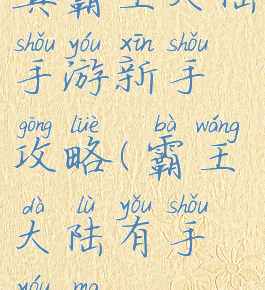 shǒu yóu xīn shǒu
手游新手
gōng lüè bà wáng
攻略(霸王
dà lù yǒu shǒu
大陆有手
yóu ma